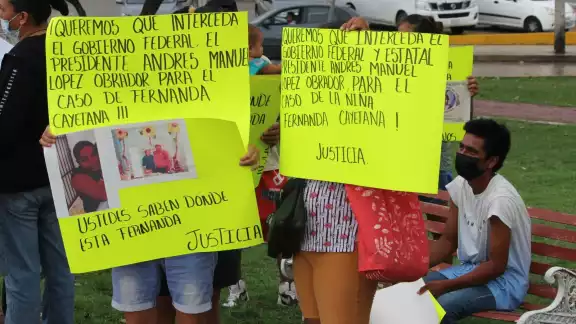 ¡QUEREMOS QUE INTERCEDA
EL GOBIERNO FEDERAL. EL
PRESIDENTE ANDRES MANUEL
LOPEZ OBRADOR PARA EL
CASO DE FERNANDA
CAYETANA !!!
USTEDES SABEN DONDE
ESTA FERNANDA
JUSTICIA
QUEREMOS QUE INTERCEDA EL
GOBIERNO FEDERAL Y ESTATAL
PRESIDENTE ANDRES MANUEL
LOPEZ OBRADOR, PARA EL
CASO DE LA NIÑA
FERNANDA CAYETANA !
JUSTICIA.